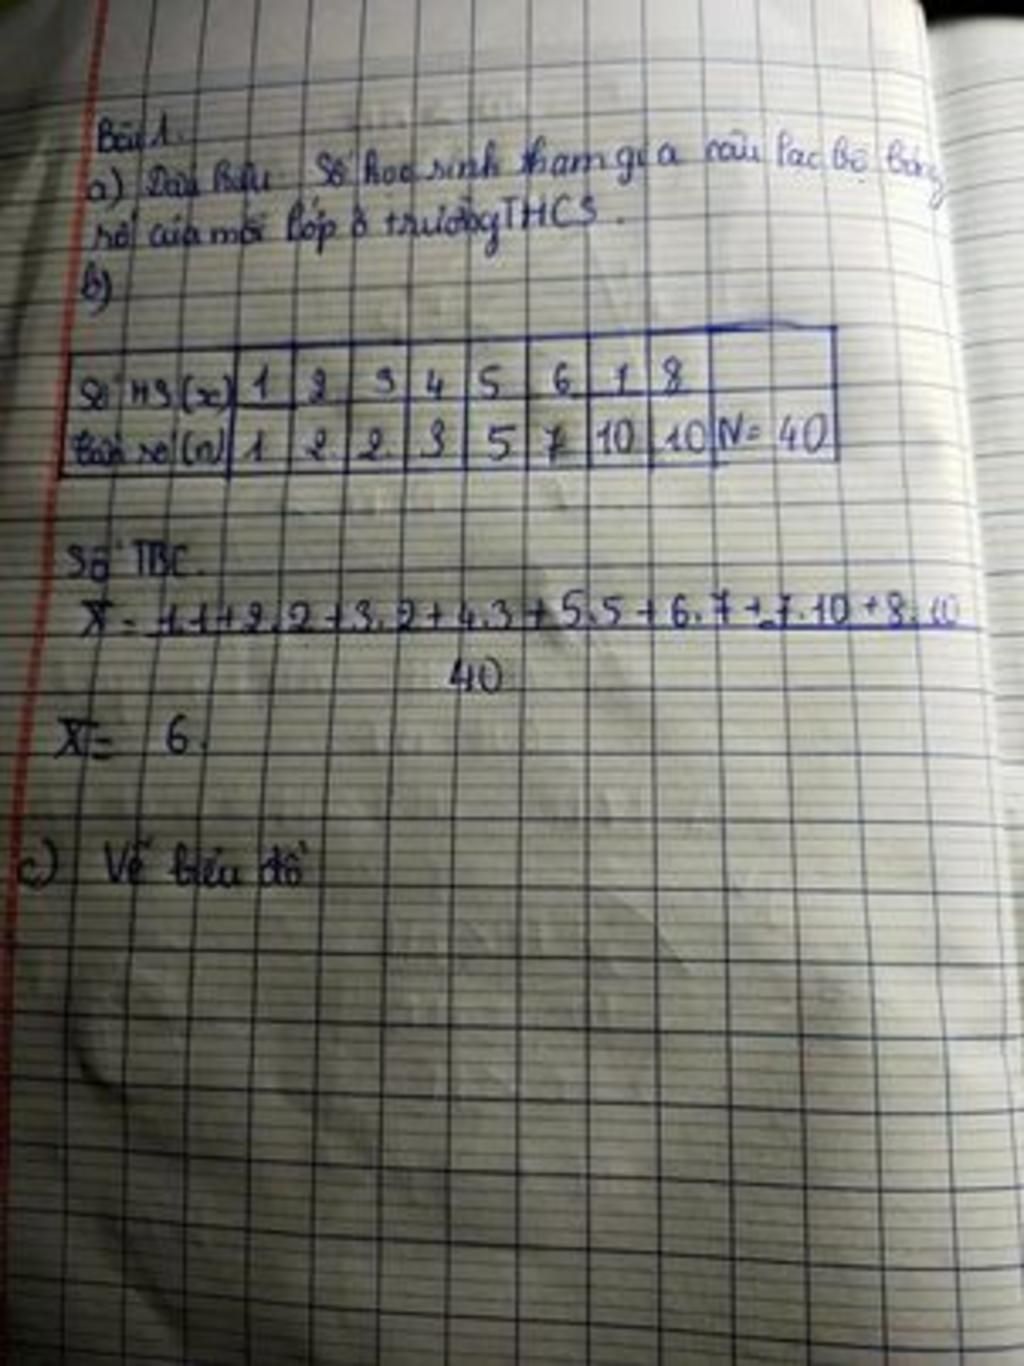 Bài 1.
a) Dấu hiệu Số học sinh tham gia câu lạc bộ bóng
rổ của mỗi lớp ở trường THCS.
b)
Số HS (x) 1 2 3 4 5 6 7 8
tần số (n) 1 2 2 3 5 7 10 10 N = 40
Số TBC.
X = 1.1+2.2+3.2+4.3+5.5+6.7+7.10+8.10
40
X = 6.
c) Vẽ biểu đồ